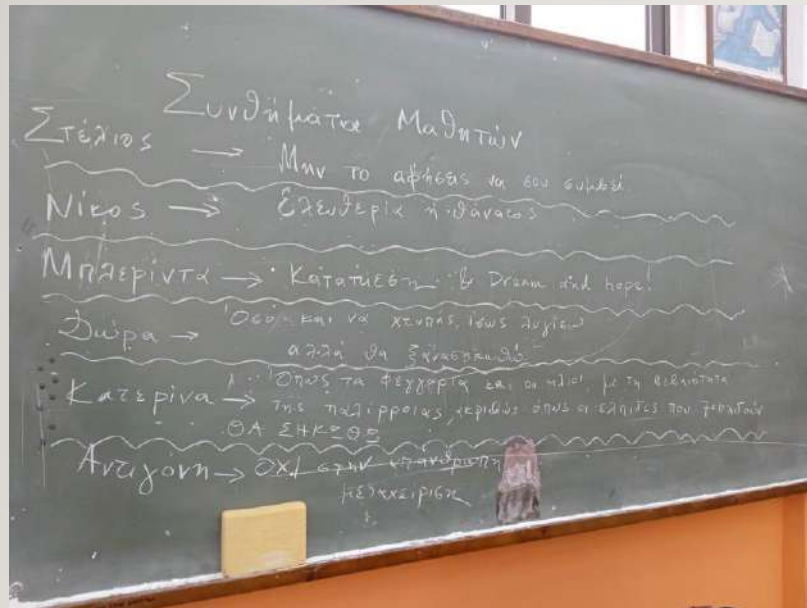 Συνθήματα Μαθητών
Στέλιος → Μην το αφήσεις να σου συμβεί
Νίκος → Ελευθερία ή θάνατος
Μπλερίντα → Καταπίεση & Dream and hope!
Δώρα → Όσο και να χτυπής, ίσως λυγίσω
αλλά θα ξανασηκωθώ
Κατερίνα → Όπως τα φεγγάρια και οι ήλιοι, με τη βεβαιότητα
της παλίρροιας, ακριβώς όπως οι ελπίδες που ξεπηδούν
ΘΑ ΣΗΚΩΘΩ
Αντιγόνη → ΟΧΙ στην απάνθρωπη
μεταχείριση